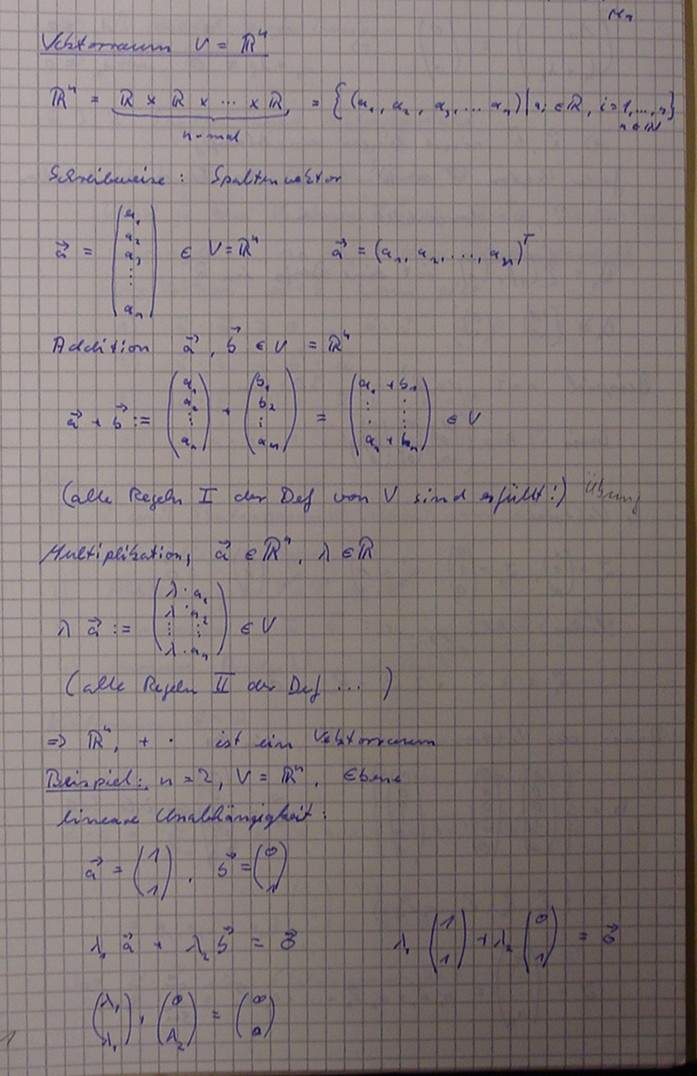 Vektorraum V = ℝⁿ
ℝⁿ = ℝ × ℝ × ... × ℝ = {(a₁, a₂, a₃, ... aₙ) | aᵢ ∈ ℝ, i = 1, ..., n}
n-mal n ∈ ℕ
Schreibweise: Spaltenvektor
a⃗ = (a₁ a₂ a₃ ⋮ aₙ) ∈ V = ℝⁿ a⃗ = (a₁, a₂, ..., aₙ)ᵀ
Addition a⃗, b⃗ ∈ V = ℝⁿ
a⃗ + b⃗ := (a₁ a₂ ⋮ aₙ) + (b₁ b₂ ⋮ aₙ) = (a₁ + b₁ ⋮ ⋮ aₙ + bₙ) ∈ V
(alle Regeln I der Def von V sind erfüllt!) Übung
Multiplikation, a⃗ ∈ ℝⁿ, λ ∈ ℝ
λ a⃗ := (λ · a₁ λ · a₂ ⋮ ⋮ λ · aₙ) ∈ V
(alle Regeln II der Def ... )
=> ℝⁿ, + · ist ein Vektorraum
Beispiel: n = 2, V = ℝⁿ, Ebene
lineare Unabhängigkeit:
a⃗ = (1 1), b⃗ = (0 1)
λ₁ a⃗ + λ₂ b⃗ = 0⃗ λ₁ (1 1) + λ₂ (0 1) = 0⃗
(λ₁ λ₁), (0 λ₂) = (0 0)